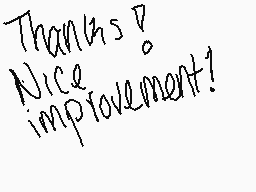 Thanks!
Nice
improvement!